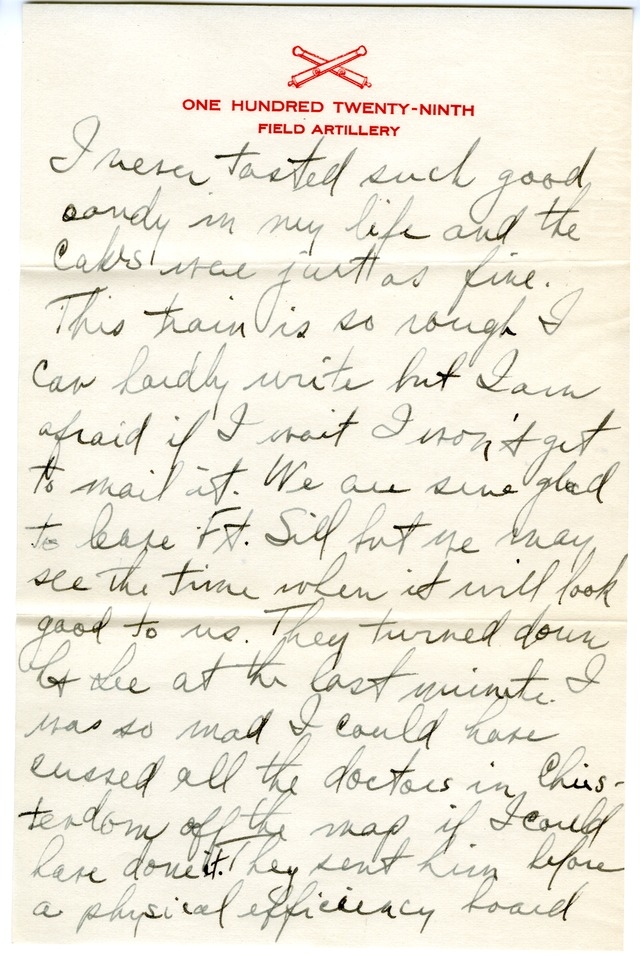 ONE HUNDRED TWENTY-NINTH
FIELD ARTILLERY
I never tasted such good
candy in my life and the
cakes were just as fine.
This train is so rough I
can hardly write but I am
afraid if I wait I won't get
to mail it. We are sure glad
to leave Ft. Sill but we may
see the time when it will look
good to us. They turned down
Lee at the last minute. I
was so mad I could have
cussed all the doctors in Chris-
tendom off the map if I could
have done it. They sent him before
a physical efficiency board